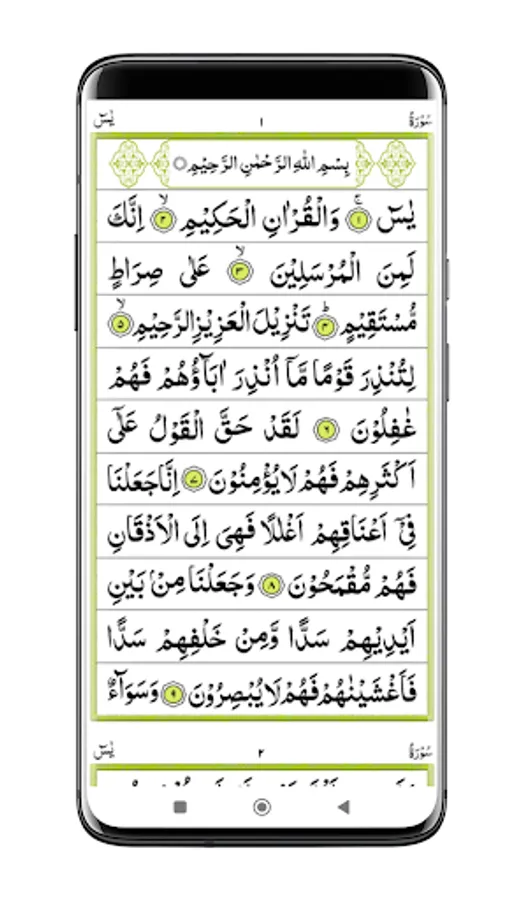 سُوْرَةُ ١ يٰسٓ
بِسْمِ اللّٰهِ الرَّحْمٰنِ الرَّحِيْمِ
يٰسٓ ۚ ١ وَالْقُرْاٰنِ الْحَكِيْمِ ۙ ٢ اِنَّكَ
لَمِنَ الْمُرْسَلِيْنَ ۙ ٣ عَلٰى صِرَاطٍ
مُّسْتَقِيْمٍ ؕ ٤ تَنْزِيْلَ الْعَزِيْزِ الرَّحِيْمِ ۙ ٥
لِتُنْذِرَ قَوْمًا مَّاۤ اُنْذِرَ اٰبَآؤُهُمْ فَهُمْ
غٰفِلُوْنَ ٦ لَقَدْ حَقَّ الْقَوْلُ عَلٰۤى
اَكْثَرِهِمْ فَهُمْ لَا يُؤْمِنُوْنَ ٧ اِنَّا جَعَلْنَا
فِيْۤ اَعْنَاقِهِمْ اَغْلٰلًا فَهِيَ اِلَى الْاَذْقَانِ
فَهُمْ مُّقْمَحُوْنَ ٨ وَجَعَلْنَا مِنْۢ بَيْنِ
اَيْدِيْهِمْ سَدًّا وَّمِنْ خَلْفِهِمْ سَدًّا
فَاَغْشَيْنٰهُمْ فَهُمْ لَا يُبْصِرُوْنَ ٩ وَسَوَآءٌ
سُوْرَةُ ٢ يٰسٓ